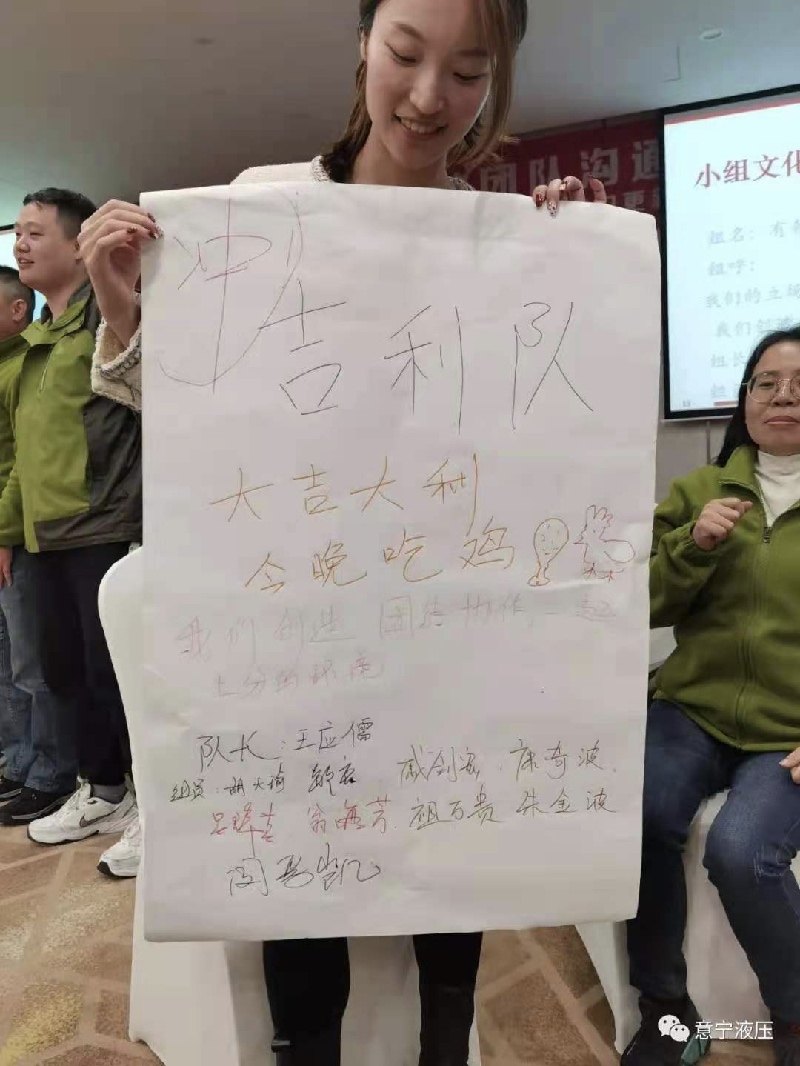 团队沟通
小组文化
组名：有
组呼：
我们的
我们创造
组长
冲
吉利队
大吉大利
今晚吃鸡
我们创造 团结协作，一起
队长：王应儒
组员：胡大海 戚剑宏、康奇波、
翁海芳、祖万贵 朱金波
闵
意宁液压